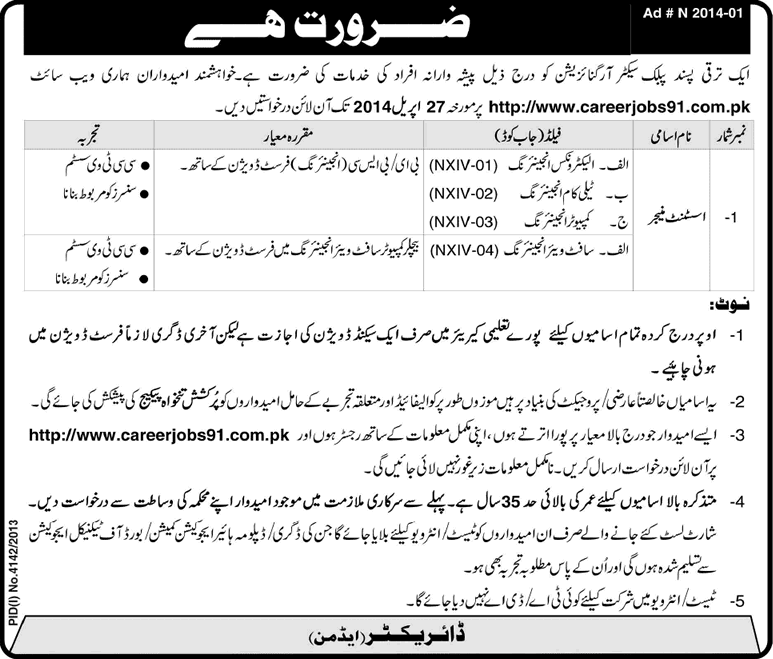 ضرورت ھے
Ad # N 2014-01
ایک ترقی پسند پبلک سیکٹر آرگنائزیشن کو درج ذیل پیشہ وارانہ افراد کی خدمات کی ضرورت ہے۔ خواہشمند امیدواران ہماری ویب سائٹ
http://www.careerjobs91.com.pk پر مورخہ 27 اپریل 2014 تک آن لائن درخواستیں دیں۔
نمبر شمار نام اسامی فیلڈ (جاب کوڈ) مقررہ معیار تجربہ
1- اسسٹنٹ منیجر
الف۔ الیکٹرونکس انجینئرنگ (NXIV-01) بی ای/بی ایس سی (انجینئرنگ) فرسٹ ڈویژن کے ساتھ۔ ● سی سی ٹی وی سسٹم
ب۔ ٹیلی کام انجینئرنگ (NXIV-02) ● سنسرز کو مربوط بنانا
ج۔ کمپیوٹر انجینئرنگ (NXIV-03)
الف۔ سافٹ ویئر انجینئرنگ (NXIV-04) بیچلر کمپیوٹر سافٹ ویئر انجینئرنگ میں فرسٹ ڈویژن کے ساتھ۔ ● سی سی ٹی وی سسٹم
● سنسرز کو مربوط بنانا
نوٹ:
1- اوپر درج کردہ تمام اسامیوں کیلئے پورے تعلیمی کیریئر میں صرف ایک سیکنڈ ڈویژن کی اجازت ہے لیکن آخری ڈگری لازماً فرسٹ ڈویژن میں
ہونی چاہیے۔
2- یہ اسامیاں خالصتاً عارضی/پروجیکٹ کی بنیاد پر ہیں موزوں طور پر کوالیفائیڈ اور متعلقہ تجربے کے حامل امیدواروں کو پُرکشش تنخواہ پیکیج کی پیشکش کی جائے گی۔
3- ایسے امیدوار جو درج بالا معیار پر پورا اترتے ہوں، اپنی مکمل معلومات کے ساتھ رجسٹر ہوں اور http://www.careerjobs91.com.pk
پر آن لائن درخواست ارسال کریں۔ نامکمل معلومات زیر غور نہیں لائی جائیں گی۔
4- متذکرہ بالا اسامیوں کیلئے عمر کی بالائی حد 35 سال ہے۔ پہلے سے سرکاری ملازمت میں موجود امیدوار اپنے محکمہ کی وساطت سے درخواست دیں۔
شارٹ لسٹ کئے جانے والے صرف ان امیدواروں کو ٹیسٹ/انٹرویو کیلئے بلایا جائے گا جن کی ڈگری/ڈپلومہ ہائیر ایجوکیشن کمیشن/بورڈ آف ٹیکنیکل ایجوکیشن
سے تسلیم شدہ ہوں گی اور اُن کے پاس مطلوبہ تجربہ بھی ہو۔
5- ٹیسٹ/انٹرویو میں شرکت کیلئے کوئی ٹی اے/ڈی اے نہیں دیا جائے گا۔
ڈائریکٹر (ایڈمن)
PID(I) No.4142/2013